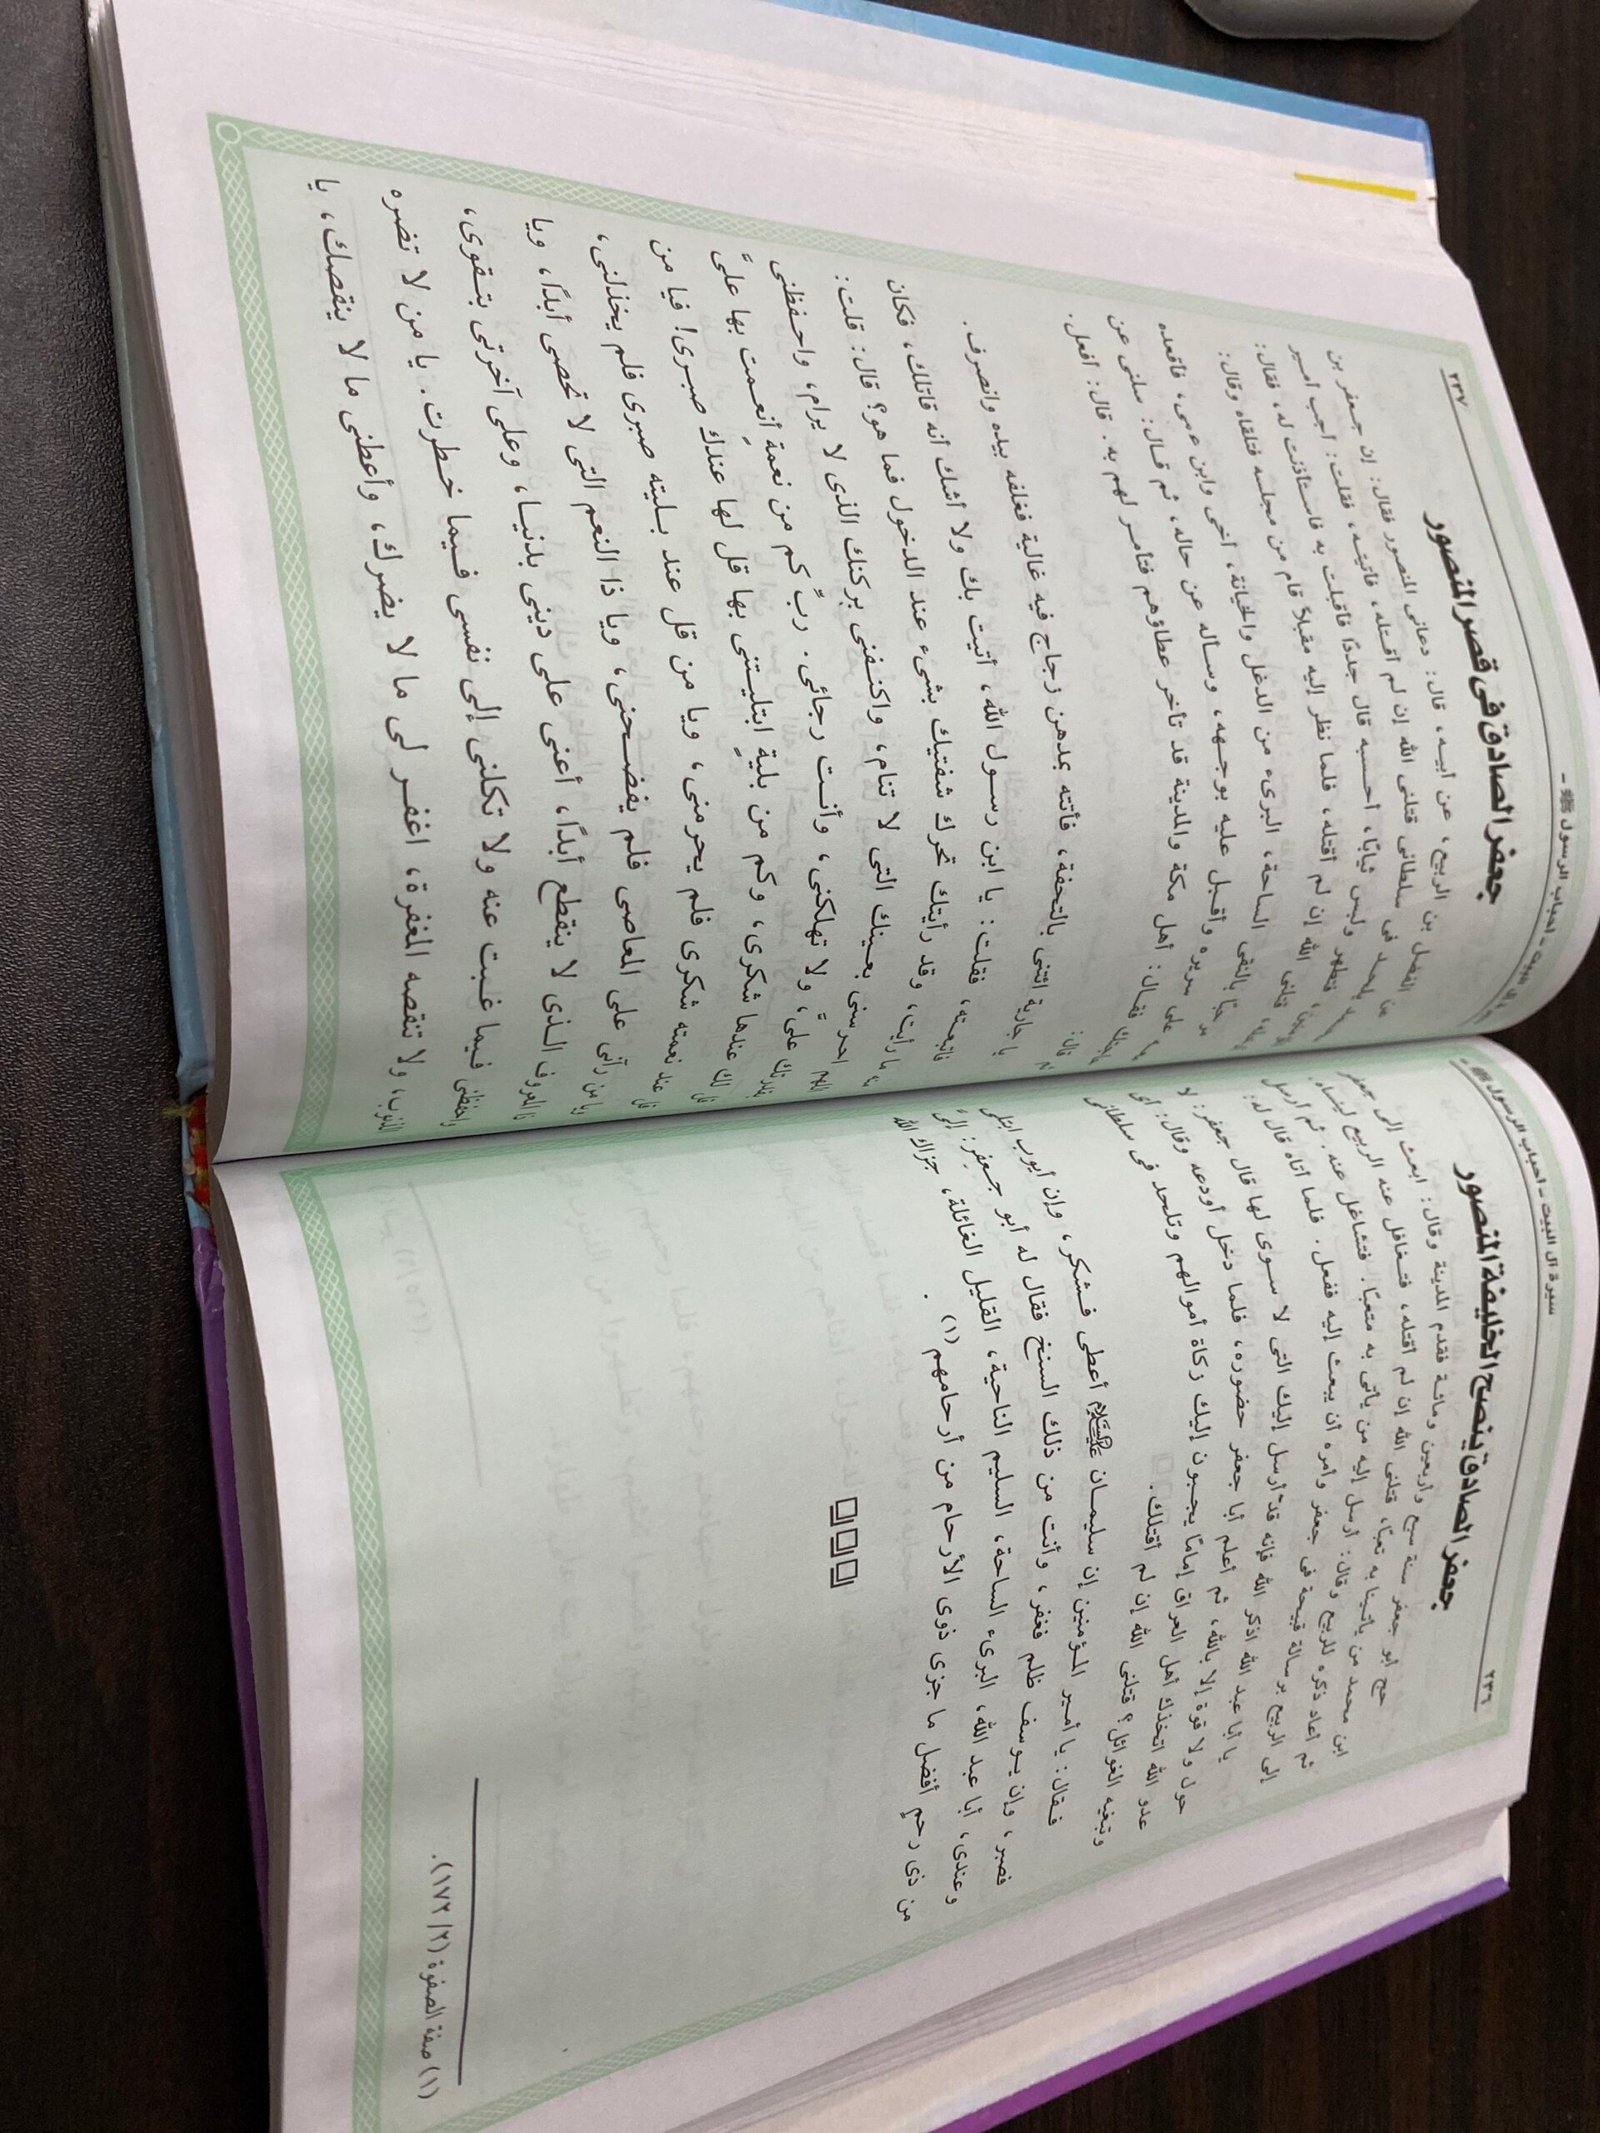 ٢٣٦
سيرة آل البيت - أحباب الرسول ﷺ -
جعفر الصادق ينصح الخليفة المنصور
حج أبو جعفر سنة سبع وأربعين ومائة فقدم المدينة وقال: ابعث إلى جعفر
ابن محمد من يأتينا به تعبًا، قتلنى الله إن لم أقتله، فتغافل عنه الربيع لينساه،
ثم أعاد ذكره للربيع وقال: أرسل إليه من يأتى به متعبًا. فتشاغل عنه. ثم أرسل
إلى الربيع برسالة قبيحة فى جعفر وأمره أن يبعث إليه ففعل. فلما أتاه قال له:
يا أبا عبد الله اذكر الله فإنه قد أرسل إليك التى لا سوى لها قال جعفر: لا
حول ولا قوة إلا بالله، ثم أعلم أبا جعفر حضوره، فلما دخل أودعه وقال: أى
عدو الله اتخذك أهل العراق إمامًا يجبون إليك زكاة أموالهم وتلحد فى سلطانى
وتبغيه الغوائل؟ قتلنى الله إن لم أقتلك.
فقال: يا أمير المؤمنين إن سليمان عليه السلام أعطى فشكر، وإن أيوب ابتلى
فصبر، وإن يوسف ظلم فغفر، وأنت من ذلك السنخ فقال له أبو جعفر: إلىَّ
وعندى، أبا عبد الله، البرىء الساحة، السليم الناحية، القليل الغائلة، جزاك الله
من ذى رحمٍ أفضل ما جزى ذوى الأرحام من أرحامهم (١).
(١) صفة الصفوة (٢/ ١٧٢).
البيت - أحباب الرسول ﷺ -
٢٣٧
جعفر الصادق فى قصر المنصور
الفضل بن الربيع، عن أبيه، قال: دعانى المنصور فقال: إن جعفر بن
يلحد فى سلطانى قتلنى الله إن لم أقتله، فأتيته، فقلت: أجب أمير
فتطهر ولبس ثيابًا، أحسبه قال جددًا فأقبلت به فاستأذنت له، فقال:
قتلنى الله إن لم أقتله، فلما نظر إليه مقبلاً قام من مجلسه فتلقاه وقال:
مرحبًا بالنقى الساحة، البرىء من الدغل والخيانة، أخى وابن عمى، فأقعده
على سريره وأقبل عليه بوجهه، وسأله عن حاله، ثم قال: سلنى عن
فقال: أهل مكة والمدينة قد تأخر عطاؤهم فتأمر لهم به. قال: أفعل.
ثم قال:
يا جارية ائتنى بالتحفة، فأتته بمدهن زجاج فيه غالية فغلفه بيده وانصرف.
فاتبعته، فقلت: يا ابن رسول الله، أتيت بك ولا أشك أنه قاتلك، فكان
ما رأيت، وقد رأيتك تحرك شفتيك بشىء عند الدخول فما هو؟ قال: قلت:
اللهم احرسنى بعينك التى لا تنام، واكنفنى بركنك الذى لا يرام، واحفظنى
بقدرتك علىَّ، ولا تهلكنى، وأنت رجائى. ربِّ كم من نعمةٍ أنعمت بها علىَّ
قل لك عندها شكرى، وكم من بليةٍ ابتليتنى بها قل لها عندك صبرى! فيا من
قل عند نعمته شكرى فلم يحرمنى، ويا من قل عند بليته صبرى فلم يخذلنى،
ويا من رآنى على المعاصى فلم يفضحنى، ويا ذا النعم التى لا تحصى أبدًا، ويا
ذا المعروف الذى لا ينقطع أبدًا، أعنى على دينى بدنيا، وعلى آخرتى بتقوى،
واحفظنى فيما غبت عنه ولا تكلنى إلى نفسى فيما خطرت. يا من لا تضره
الذنوب، ولا تنقصه المغفرة، اغفر لى ما لا يضرك، وأعطنى ما لا ينقصك، يا